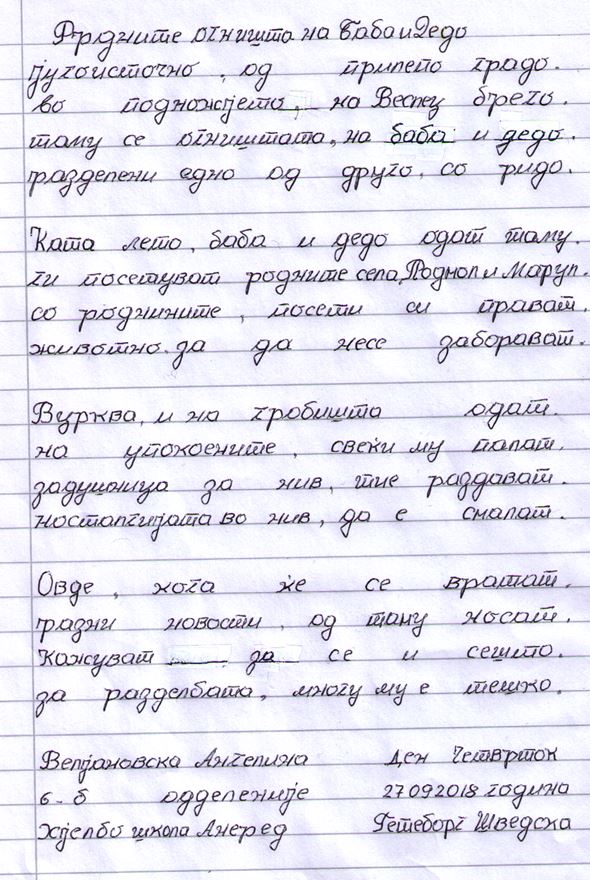 Родните огништа на Баба и Дедо
југоисточно, од прилепо градо.
во подножјето, на Веслец брего.
таму се огништата, на баба и дедо.
разделени едно од друго, со ридо.
Ката лето, баба и дедо одат таму.
ги посетуват родните села, Роднол и Марул.
со роднините, посети си прават.
животно за да несе заборават.
Вцрква, и на гробишта одат.
на упокоените, свеќи му палат.
задушница за нив, тие раздават.
носталгијата во нив, да е смалат.
Овде, кога ќе се вратат.
разни новости, од таму носат.
Кажуват за се и сешто.
за разделбата, многу му е тешко.
Велјановска Ангелина ден Четврток
6-б одделеније 27092018 година
Хјелбо школа Ангеред Гетеборг Шведска